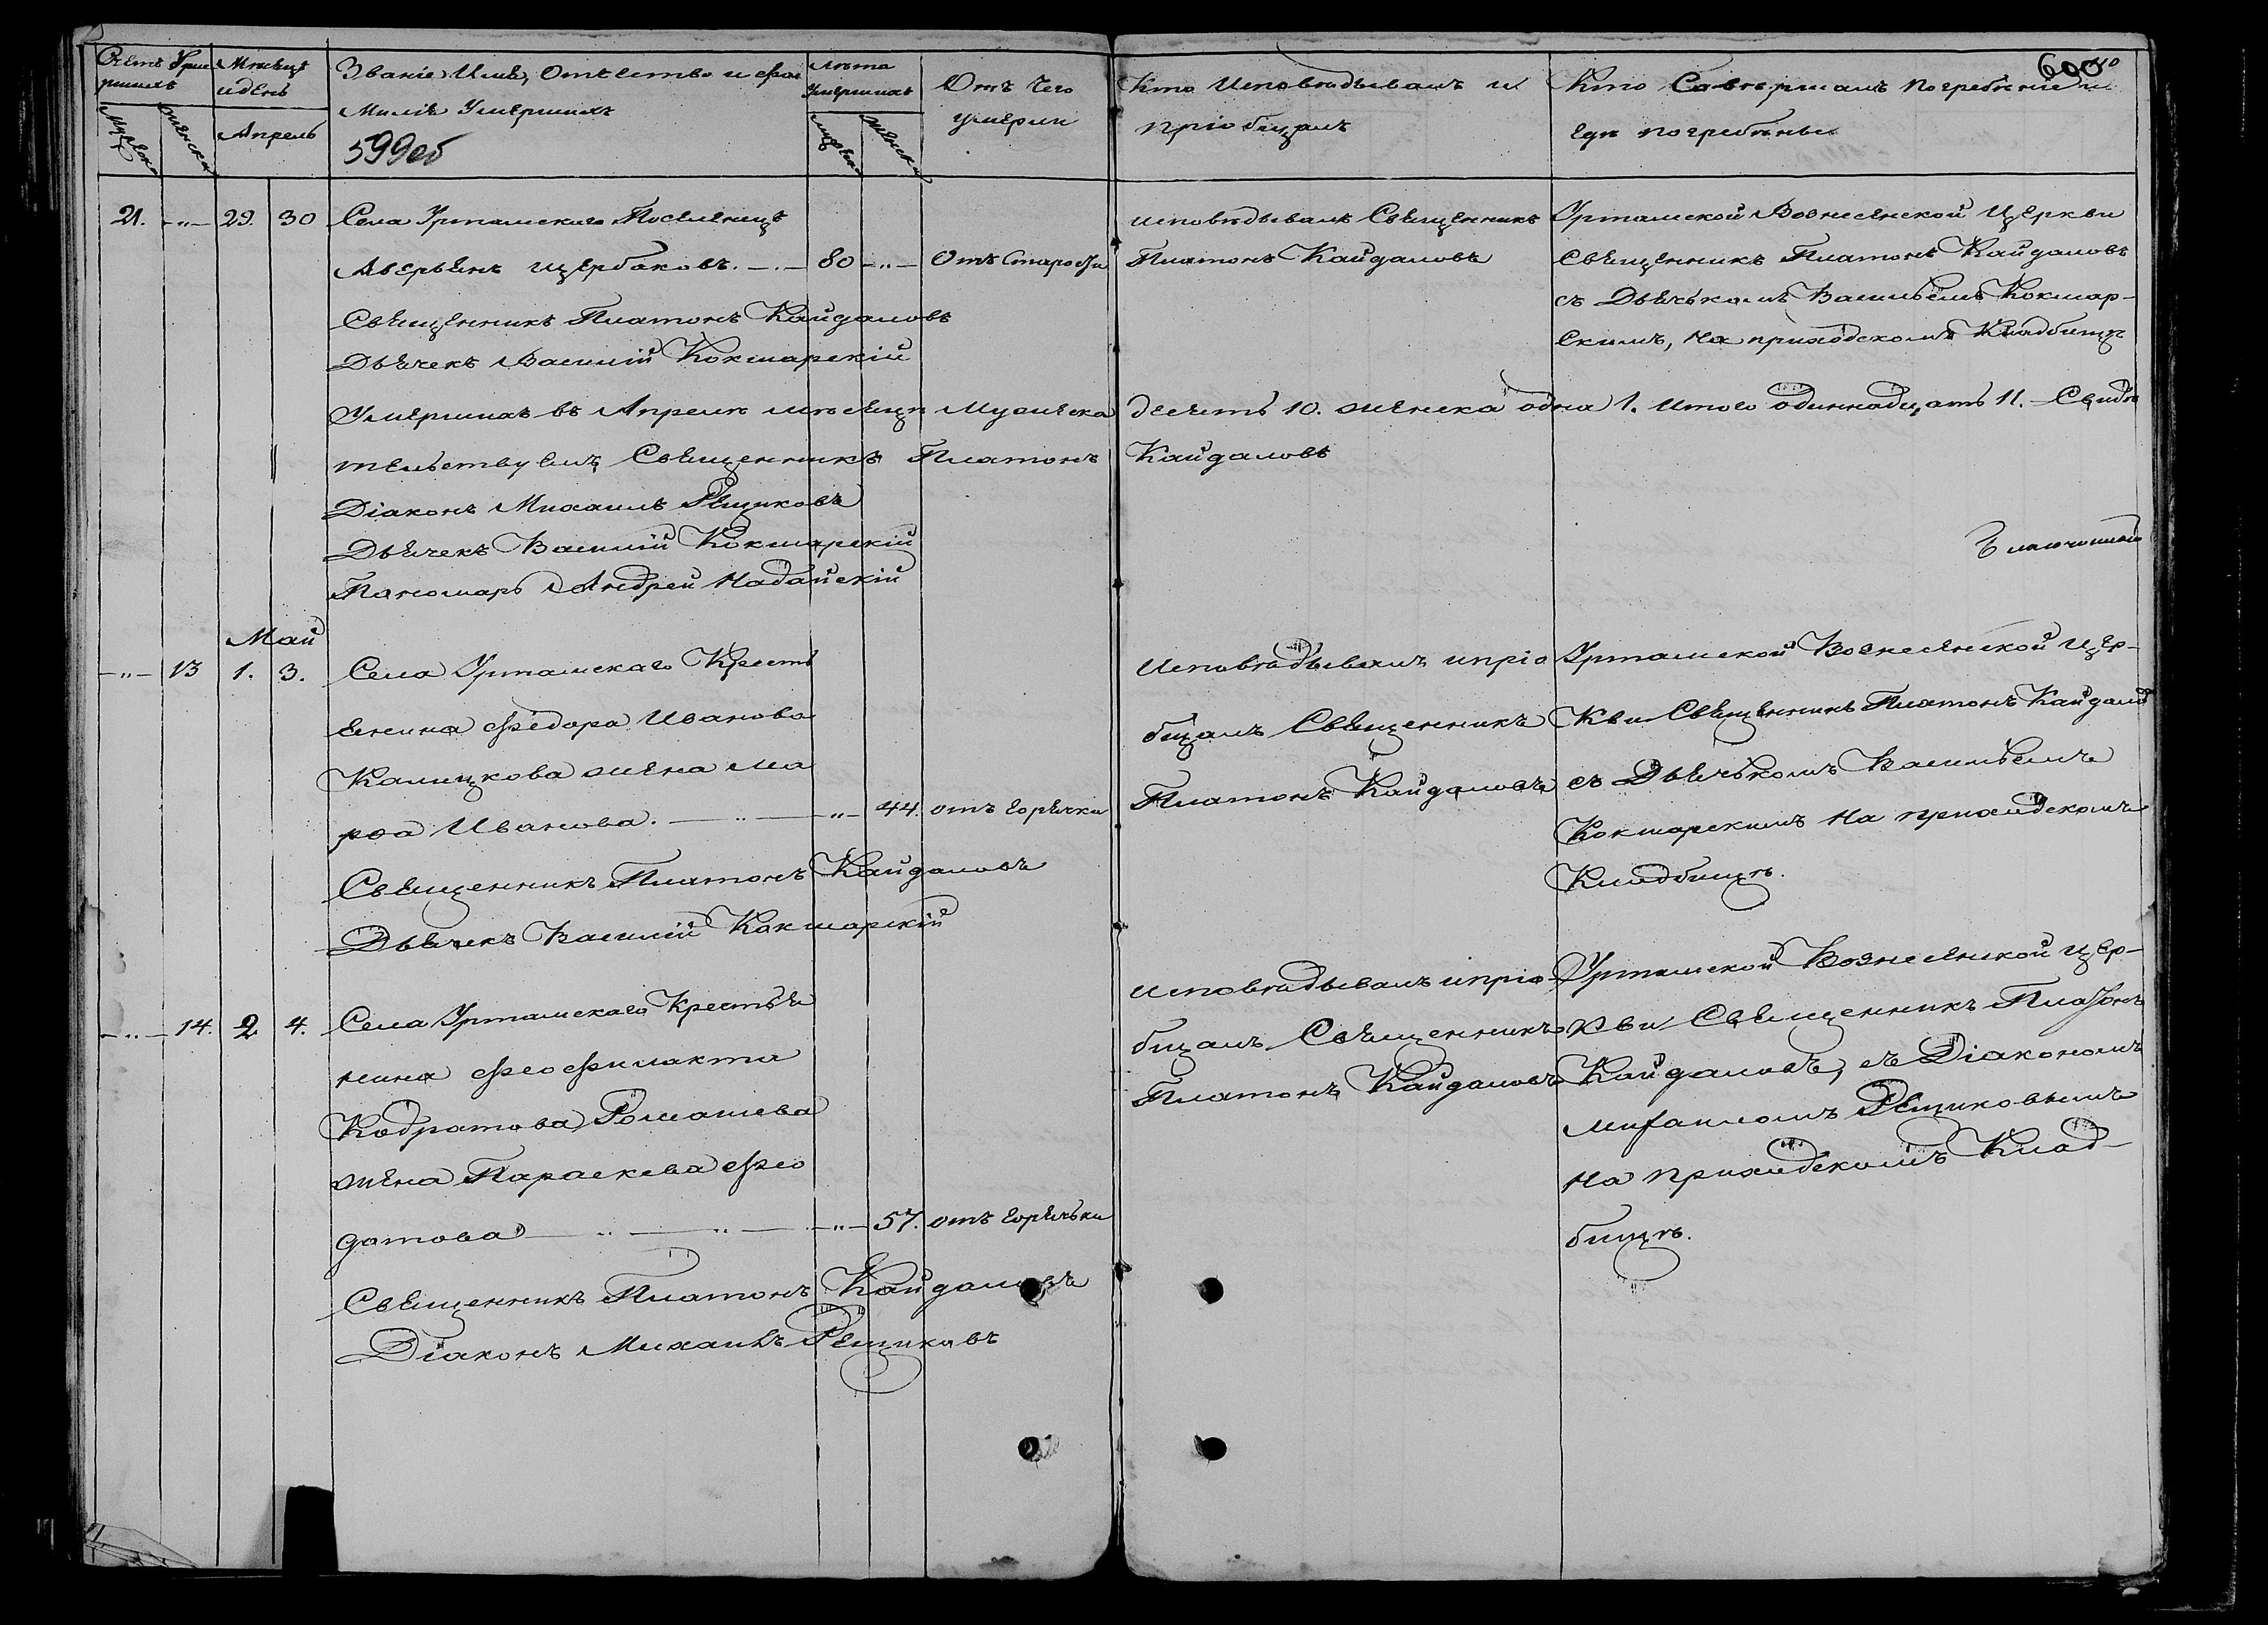 600
Счетъ Уме
ршихъ
Мужеска
Женска
Мѣсецъ
и день
Апрель
Званіе, Имя, Отчество и фа
милія Умершихъ
599об
Лѣта
Умершихъ
мужеска
женска
Отъ чего
умерли
Кто Исповѣдывалъ и
пріобщалъ
Кто Совершалъ погребѣніе и
гдѣ погребѣны
21. -"- 29. 30 Села Уртамскаго Поселенецъ
Аверьенъ Щербаковъ. -.- 80 -"- Отъ Старости
Свещенникъ Платонъ Кайдаловъ
Дьечекъ Василій Кокшарскій
исповѣдывалъ Свещенникъ
Платонъ Кайдаловъ
Уртамской Вознесенской Церкви
Свещенникъ Платонъ Кайдаловъ
съ Дьечькомъ Васильемъ Кокшар-
скимъ, на приходскомъ Кладбищѣ
Умершихъ въ Апрелѣ мѣсецѣ Мужеска десеть 10. женска одна 1. Итого одиннадцать 11. - Свидѣ
тельствуемъ Свещенникъ Платонъ Кайдаловъ
Діаконъ Михаилъ Рещиковъ
Дьечекъ Василій Кокшарскій
Пономарь Андрей Надайскій
Май
-"- 13 1. 3. Села Уртамскаго Кресть
енина Федора Иванова
Калицкова жена Ма
рфа Иванова. -"- -"- 44. отъ горечки
Свещенникъ Платонъ Кайдаловъ
Дьечекъ Василій Кокшарскій
Исповѣдывалъ и пріо
бщалъ Свещенникъ
Платонъ Кайдаловъ
Уртамской Вознесенской Цер-
кви Свещенникъ Платонъ Кайдалов
съ Дьечькомъ Васильемъ
Кокшарскимъ на приходскомъ
Кладбищѣ.
-"- 14. 2 4. Села Уртамскаго Крестье
нина Феофилакта
Кодратова Ромашева
жена Параскева Фео
датова -"- -"- -"- 57. отъ горечьки
Свещенникъ Платонъ Кайдаловъ
Діаконъ Михаилъ Рещиковъ
исповѣдывалъ и пріо
бщалъ Свещенникъ
Платонъ Кайдаловъ
Уртамской Вознесенской Цер-
кви Свещенникъ Платонъ
Кайдаловъ, съ Діакономъ
Михаиломъ Рещиковымъ
на приходскомъ Клад-
бищѣ.